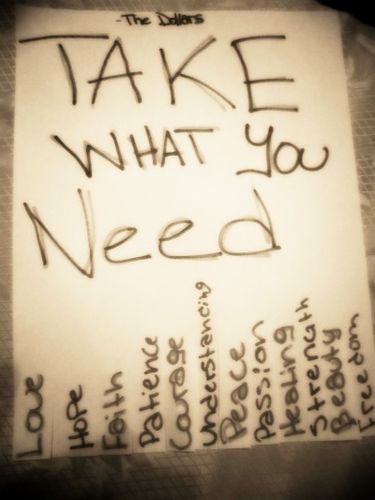 -The Dollars
TAKE
WHAT YOU
Need
Love
Hope
Faith
Patience
Courage
Understancing
Peace
Passion
Healing
Strength
Beauty
Freedom